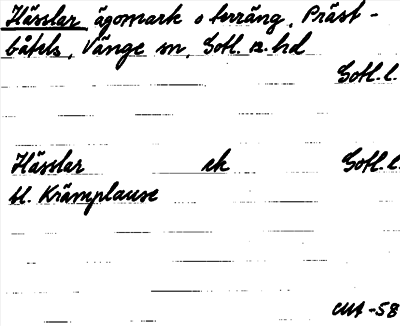 Hässlar ägomark o terräng, Präst-
båtels, Vänge sn, Gotl. n. hd
Gotl. l.
Hässlar ek Gotl. l.
bl. Krämplause
-58